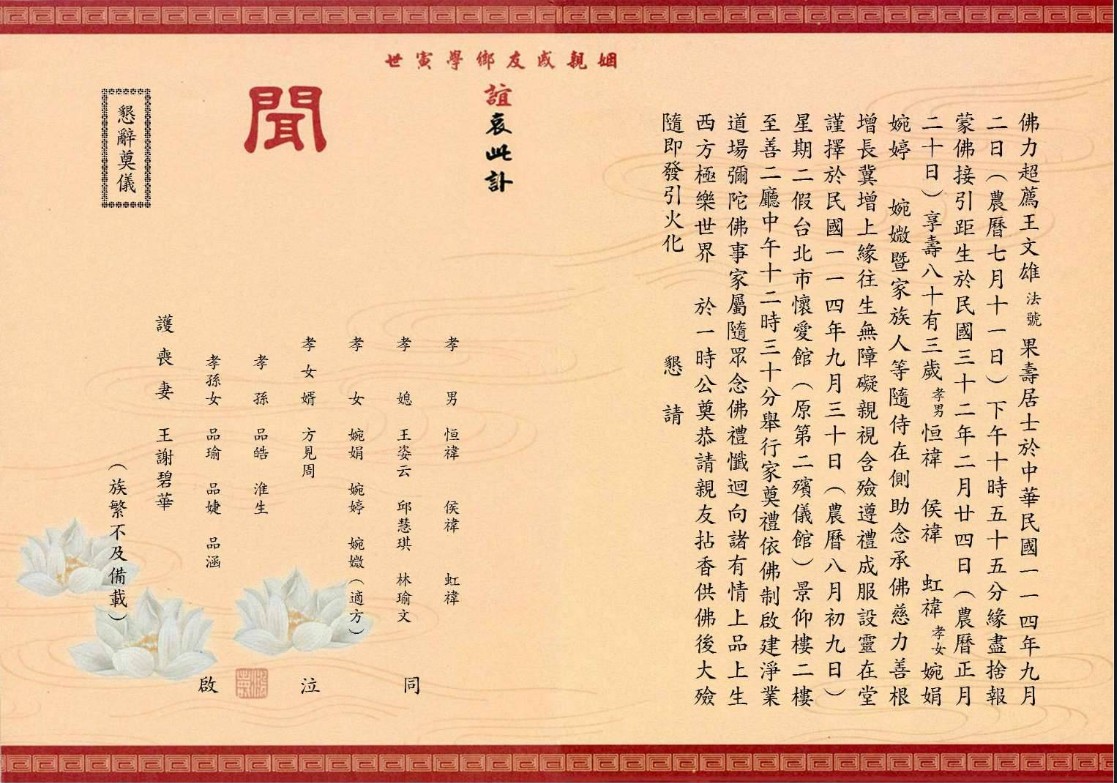 佛力超薦王文雄 法號 果壽居士於中華民國一一四年九月
二日（農曆七月十一日）下午十時五十五分緣盡捨報
蒙佛接引距生於民國三十二年二月廿四日（農曆正月
二十日）享壽八十有三歲 孝男 恒禕 侯禕 虹禕 孝女 婉娟
婉婷 婉媺暨家族人等隨侍在側助念承佛慈力善根
增長冀增上緣往生無障礙親視含殮遵禮成服設靈在堂
謹擇於民國一一四年九月三十日（農曆八月初九日）
星期二假台北市懷愛館（原第二殯儀館）景仰樓二樓
至善二廳中午十二時三十分舉行家奠禮依佛制啟建淨業
道場彌陀佛事家屬隨眾念佛禮懺迴向諸有情上品上生
西方極樂世界 於一時公奠恭請親友拈香供佛後大殮
隨即發引火化 懇請
姻親戚友鄉學寅世
誼哀此訃
聞
懇辭奠儀
孝男 恒禕 侯禕 虹禕
孝媳 王姿云 邱慧琪 林瑜文
孝女 婉娟 婉婷 婉媺（適方）
孝女婿 方見周
孝孫 品皓 淮生
孝孫女 品瑜 品婕 品涵
護喪妻 王謝碧華
（族繁不及備載）
同泣啟